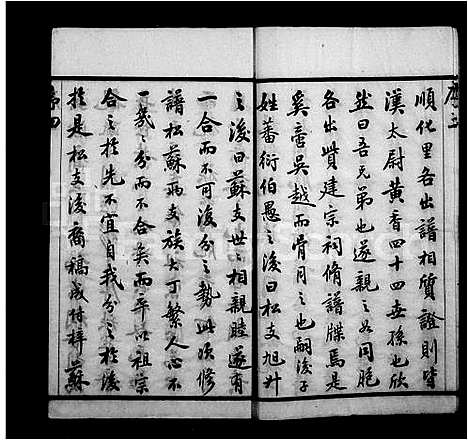 順化里各出譜相質證則皆
漢太尉黃香四十四世孫也欣
然曰吾兄弟也遂親之如同胞
各出貲建宗祠脩譜牒焉是
奚啻吳越而骨肉之也嗣後子
姓蕃衍伯愚之後曰松支旭升
之後曰蘇支世之相親睦遂有
一合而不可復分之勢此次修
譜松蘇兩支族大丁繁人心不
一幾幾分而不合矣而卒以祖宗
合之於先不宜自我分之於後
於是松支後裔稿成付梓蘇